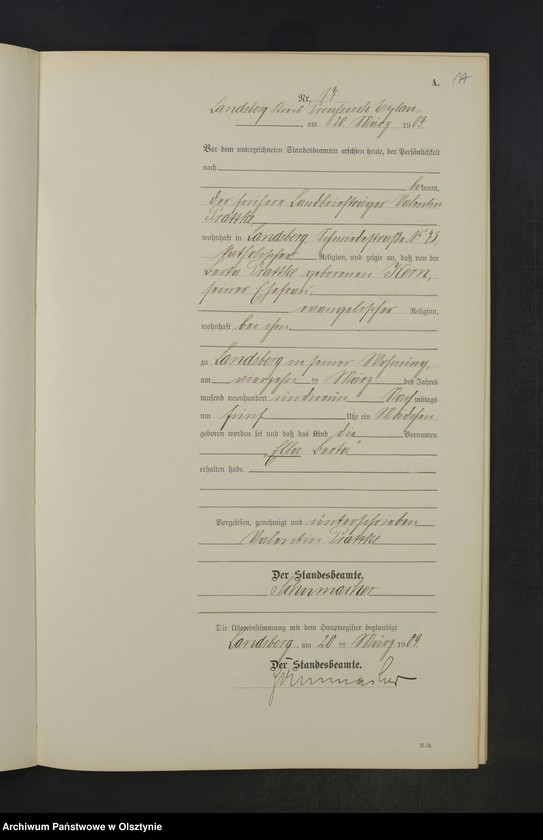 A.
17
Nr. 17
Landsberg Kreis Preußisch Eylau,
am 20. März 1909.
Vor dem unterzeichneten Standesbeamten erschien heute, der Persönlichkeit
nach
bekannt,
der frühere Landbriefträger Valentin
Prattke,
wohnhaft in Landsberg Schmiedestraße No 95,
katholischer Religion, und zeigte an, daß von der
Berta Prattke geborenen Kern,
seiner Ehefrau,
evangelischer Religion,
wohnhaft bei ihm
zu Landsberg in seiner Wohnung,
am vierzehnten März des Jahres
tausend neunhundert und neun Nachmittags
um fünf Uhr ein Mädchen
geboren worden sei und daß das Kind die Vornamen
„Ella Berta"
erhalten habe.
Vorgelesen, genehmigt und unterschrieben
Valentin Prattke
Der Standesbeamte.
Schumacher
Die Übereinstimmung mit dem Hauptregister beglaubigt
Landsberg, am 20ten März 1909.
Der Standesbeamte.
Schumacher
Archiwum Państwowe w Olsztynie